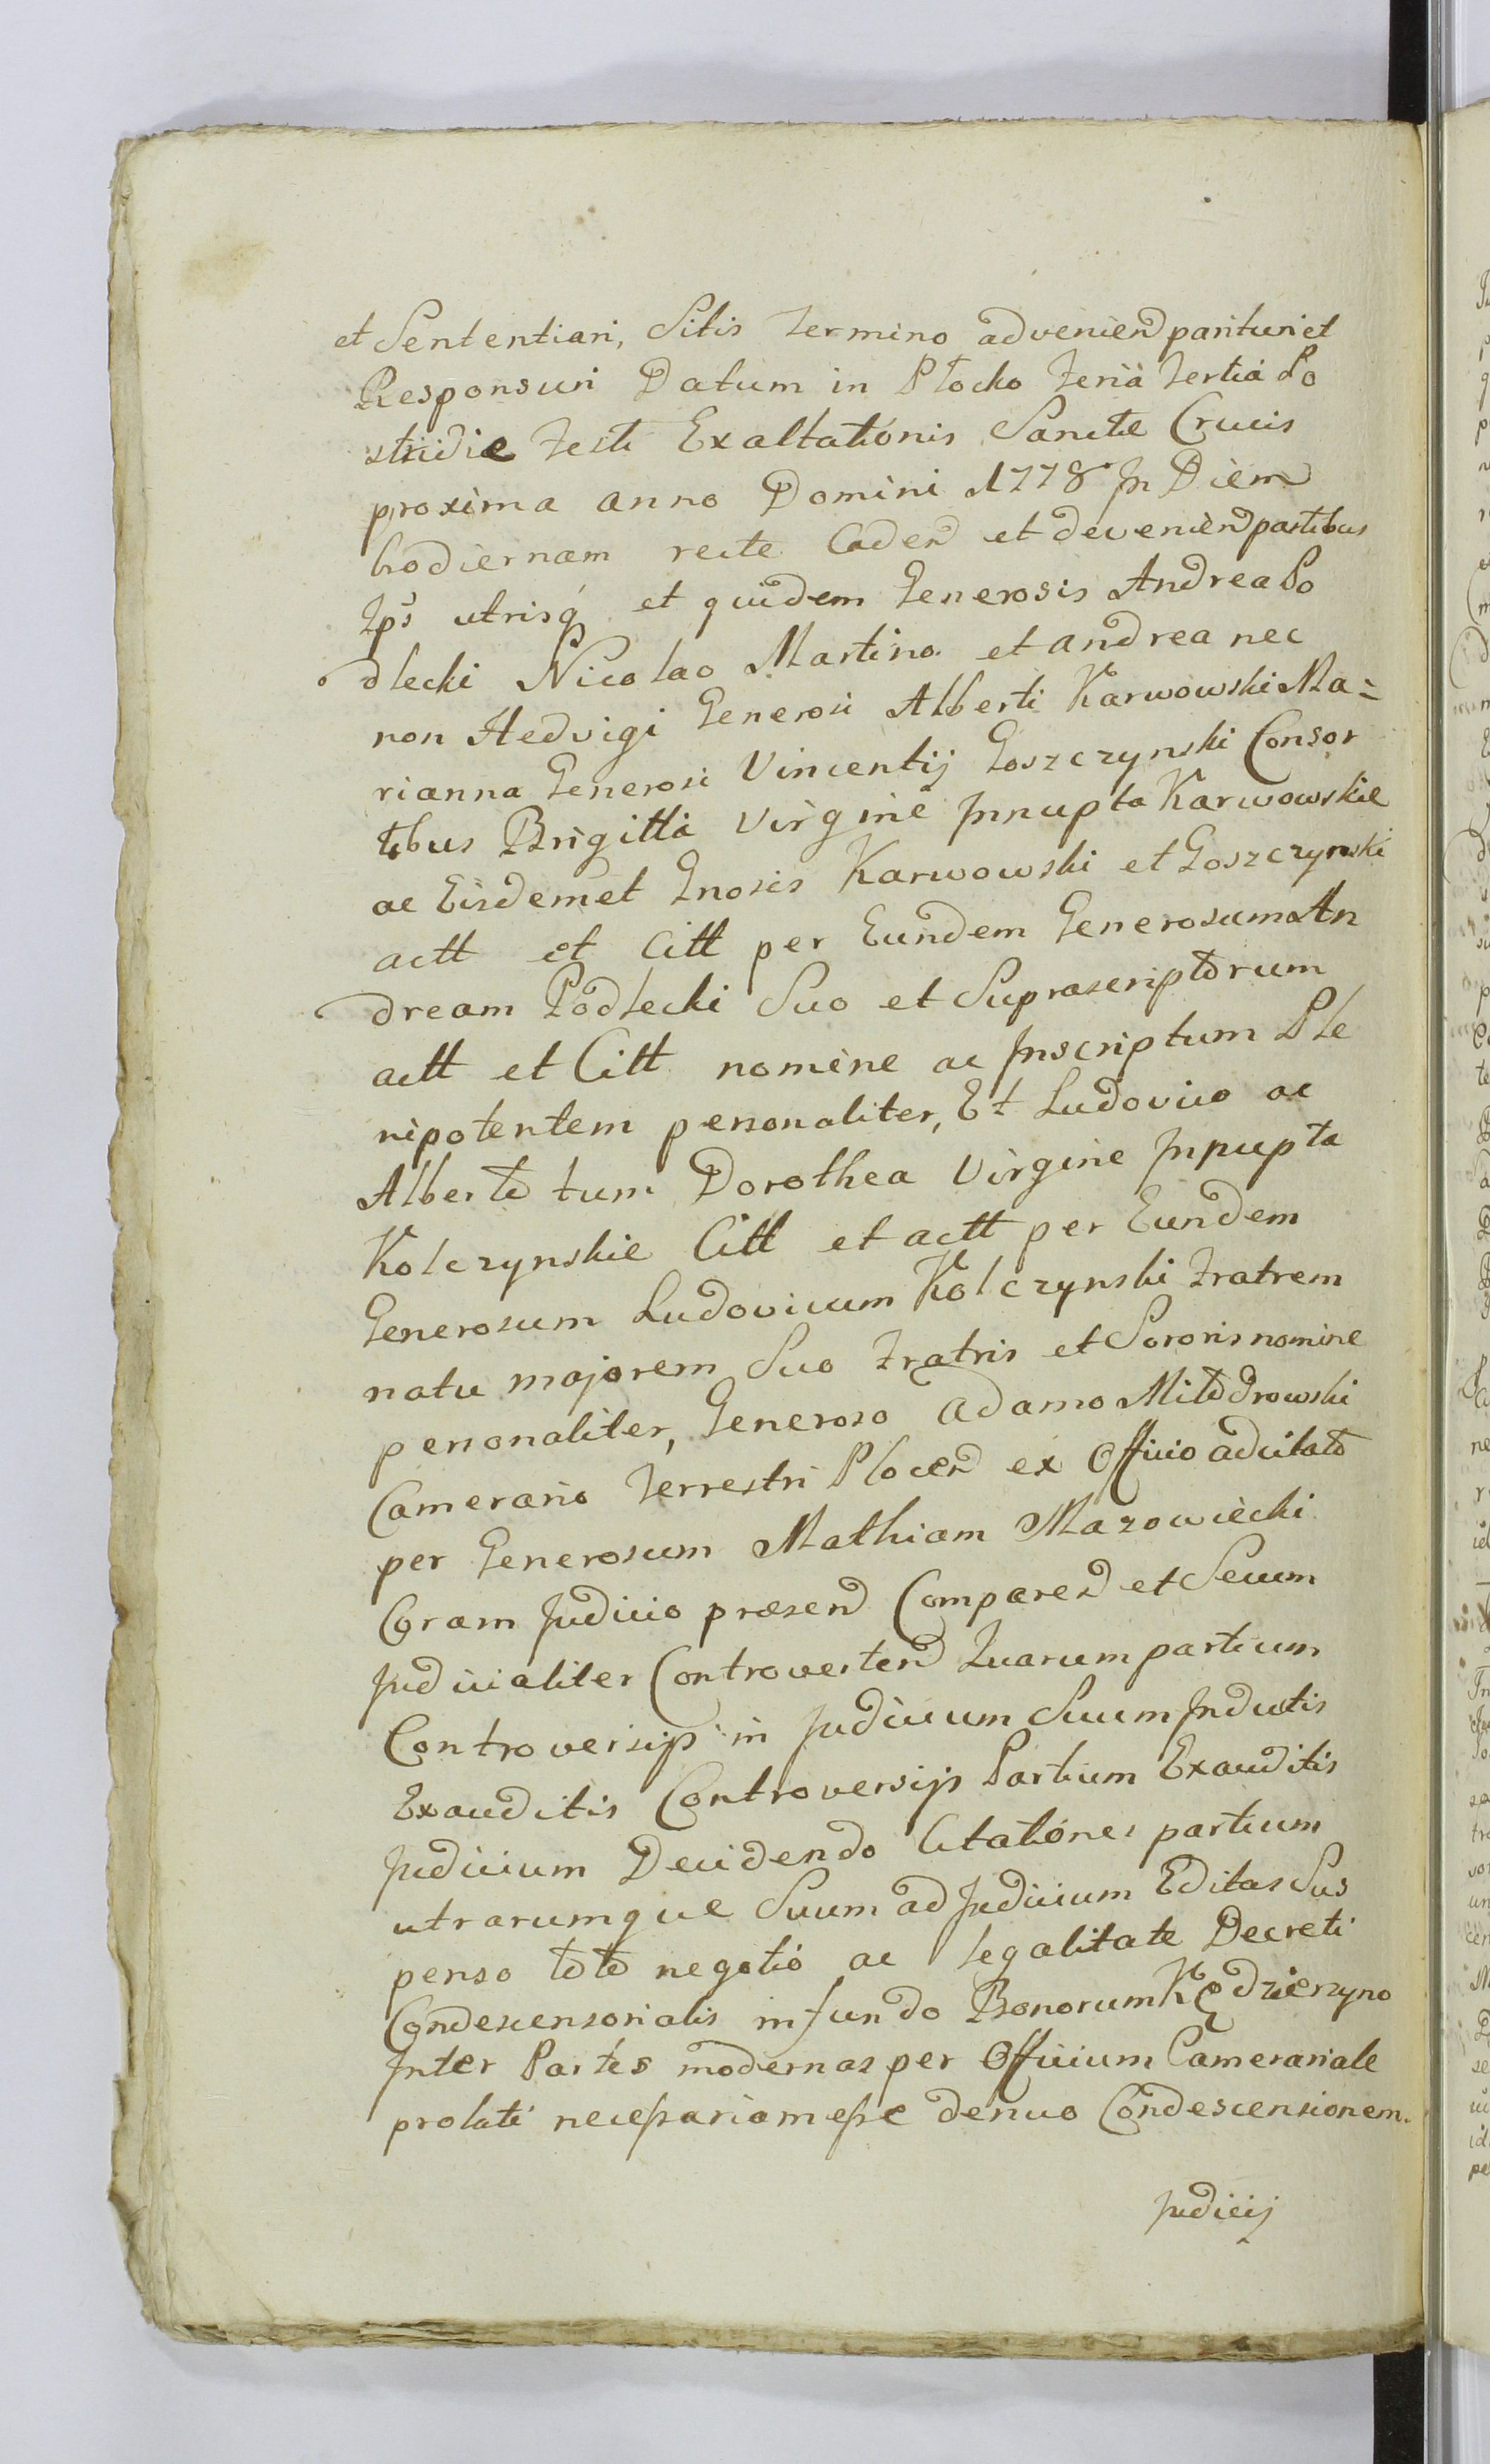 et Sententiari, Sitis termino advenien parituri et
Responsuri Datum in Płocko Feria Tertia Po
stridie Festi Exaltationis Sanctæ Crucis
proxima anno Domini 1778 In Diem
hodiernam recte Caden et devenien partibus
Ips utrisq et quidem Generosis Andrea Po
dlecki Nicolao Martino et andrea nec
non Hedvigi Generosi Alberti Karwowski Ma=
rianna Generosi Vincentij Goszczynski Consor
tibus Brigitta Virgine Innupta Karwowskie
ac Eisdemet Gnosis Karwowski et Goszczynski
actt et Citt per Eundem Generosum An
dream Podlecki Suo et Suprascriptorum
actt et Citt nomine ac Inscriptum Ple
nipotentem personaliter, Et Ludovico ac
Alberto tum Dorothea Virgine Innupta
Kolczynskie Citt et actt per Eundem
Generosum Ludovicum Kolczynski Fratrem
natu majorem Suo Fratris et Sororis nomine
personaliter, Generoso Adamo Mitodrowski
Camerario Terrestri Plocen ex Officio adcitato
per Generosum Mathiam Mazowiecki
Coram Judicio præsen Comparen et Secum
Judicialiter Controverten Quarum partium
Controversijs in Judicium Suum Inductis
Exauditis Controversijs Partium Exauditis
Judicium Decidendo Citationes partium
utrarumque Suum ad Judicium Editas Sus
penso toto negotio ac legalitate Decreti
Condescensorialis in fundo Bonorum Kędzierzyno
Inter Partes modernas per Officium Camerariale
prolati necessariam esse denuo Condescensionem.
Judicij